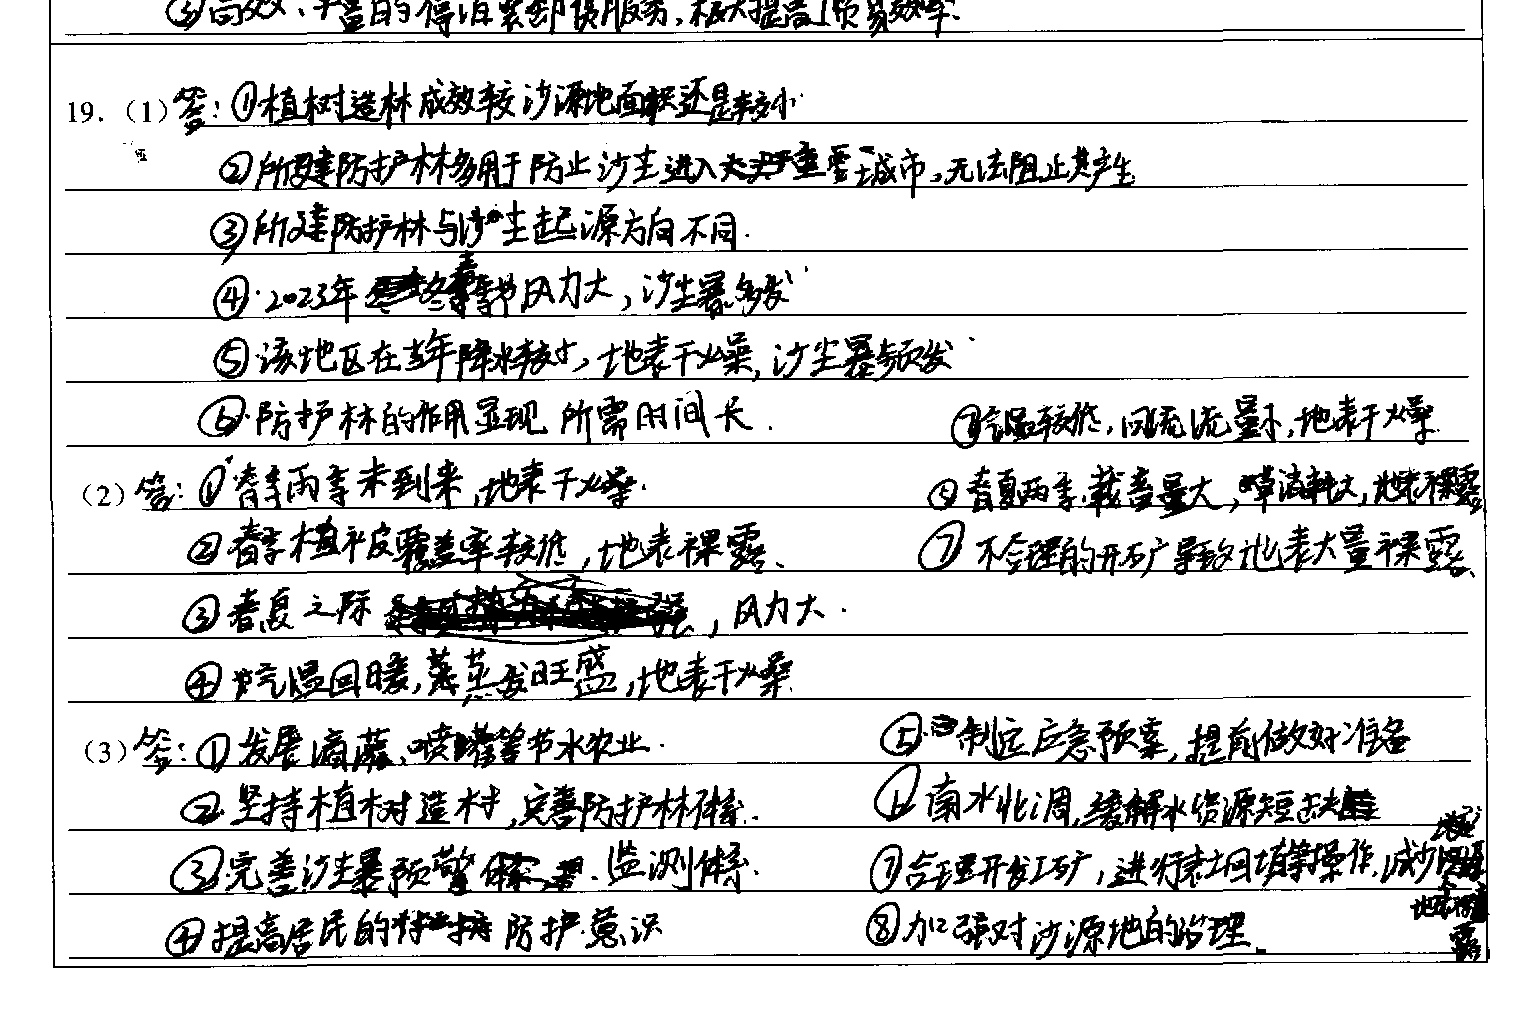 ③高效、丰富的停泊装卸货服务,极大提高了贸易效率.
19.(1)答:①植树造林成效较沙源地面积还是较小
②所建防护林多用于防止沙尘进入重要城市,无法阻止其产生
③所建防护林与沙尘起源方向不同.
④.2023年春季风力大,沙尘暴多发
⑤该地区在当年降水较少,地表干燥,沙尘暴频发
⑥.防护林的作用显现 所需时间长. ⑦气温较低,河流流量小,地表干燥.
(2)答:①春季雨季未到来,地表干燥. ⑥春夏两季,载畜量大, 地表裸露
②春季植被覆盖率较低,地表裸露. ⑦不合理的开矿导致地表大量裸露.
③春夏之际 ,风力大.
④ 气温回暖,蒸发旺盛,地表干燥
(3)答:①发展滴灌、喷灌等节水农业. ⑤制定应急预案,提前做好准备
②坚持植树造林,完善防护林体系. ⑥南水北调,缓解水资源短缺
③完善沙尘暴预警.监测体系. ⑦合理开发工矿,进行表土回填等操作,减少地表裸露
④提高居民的 防护意识 ⑧加强对沙源地的治理.